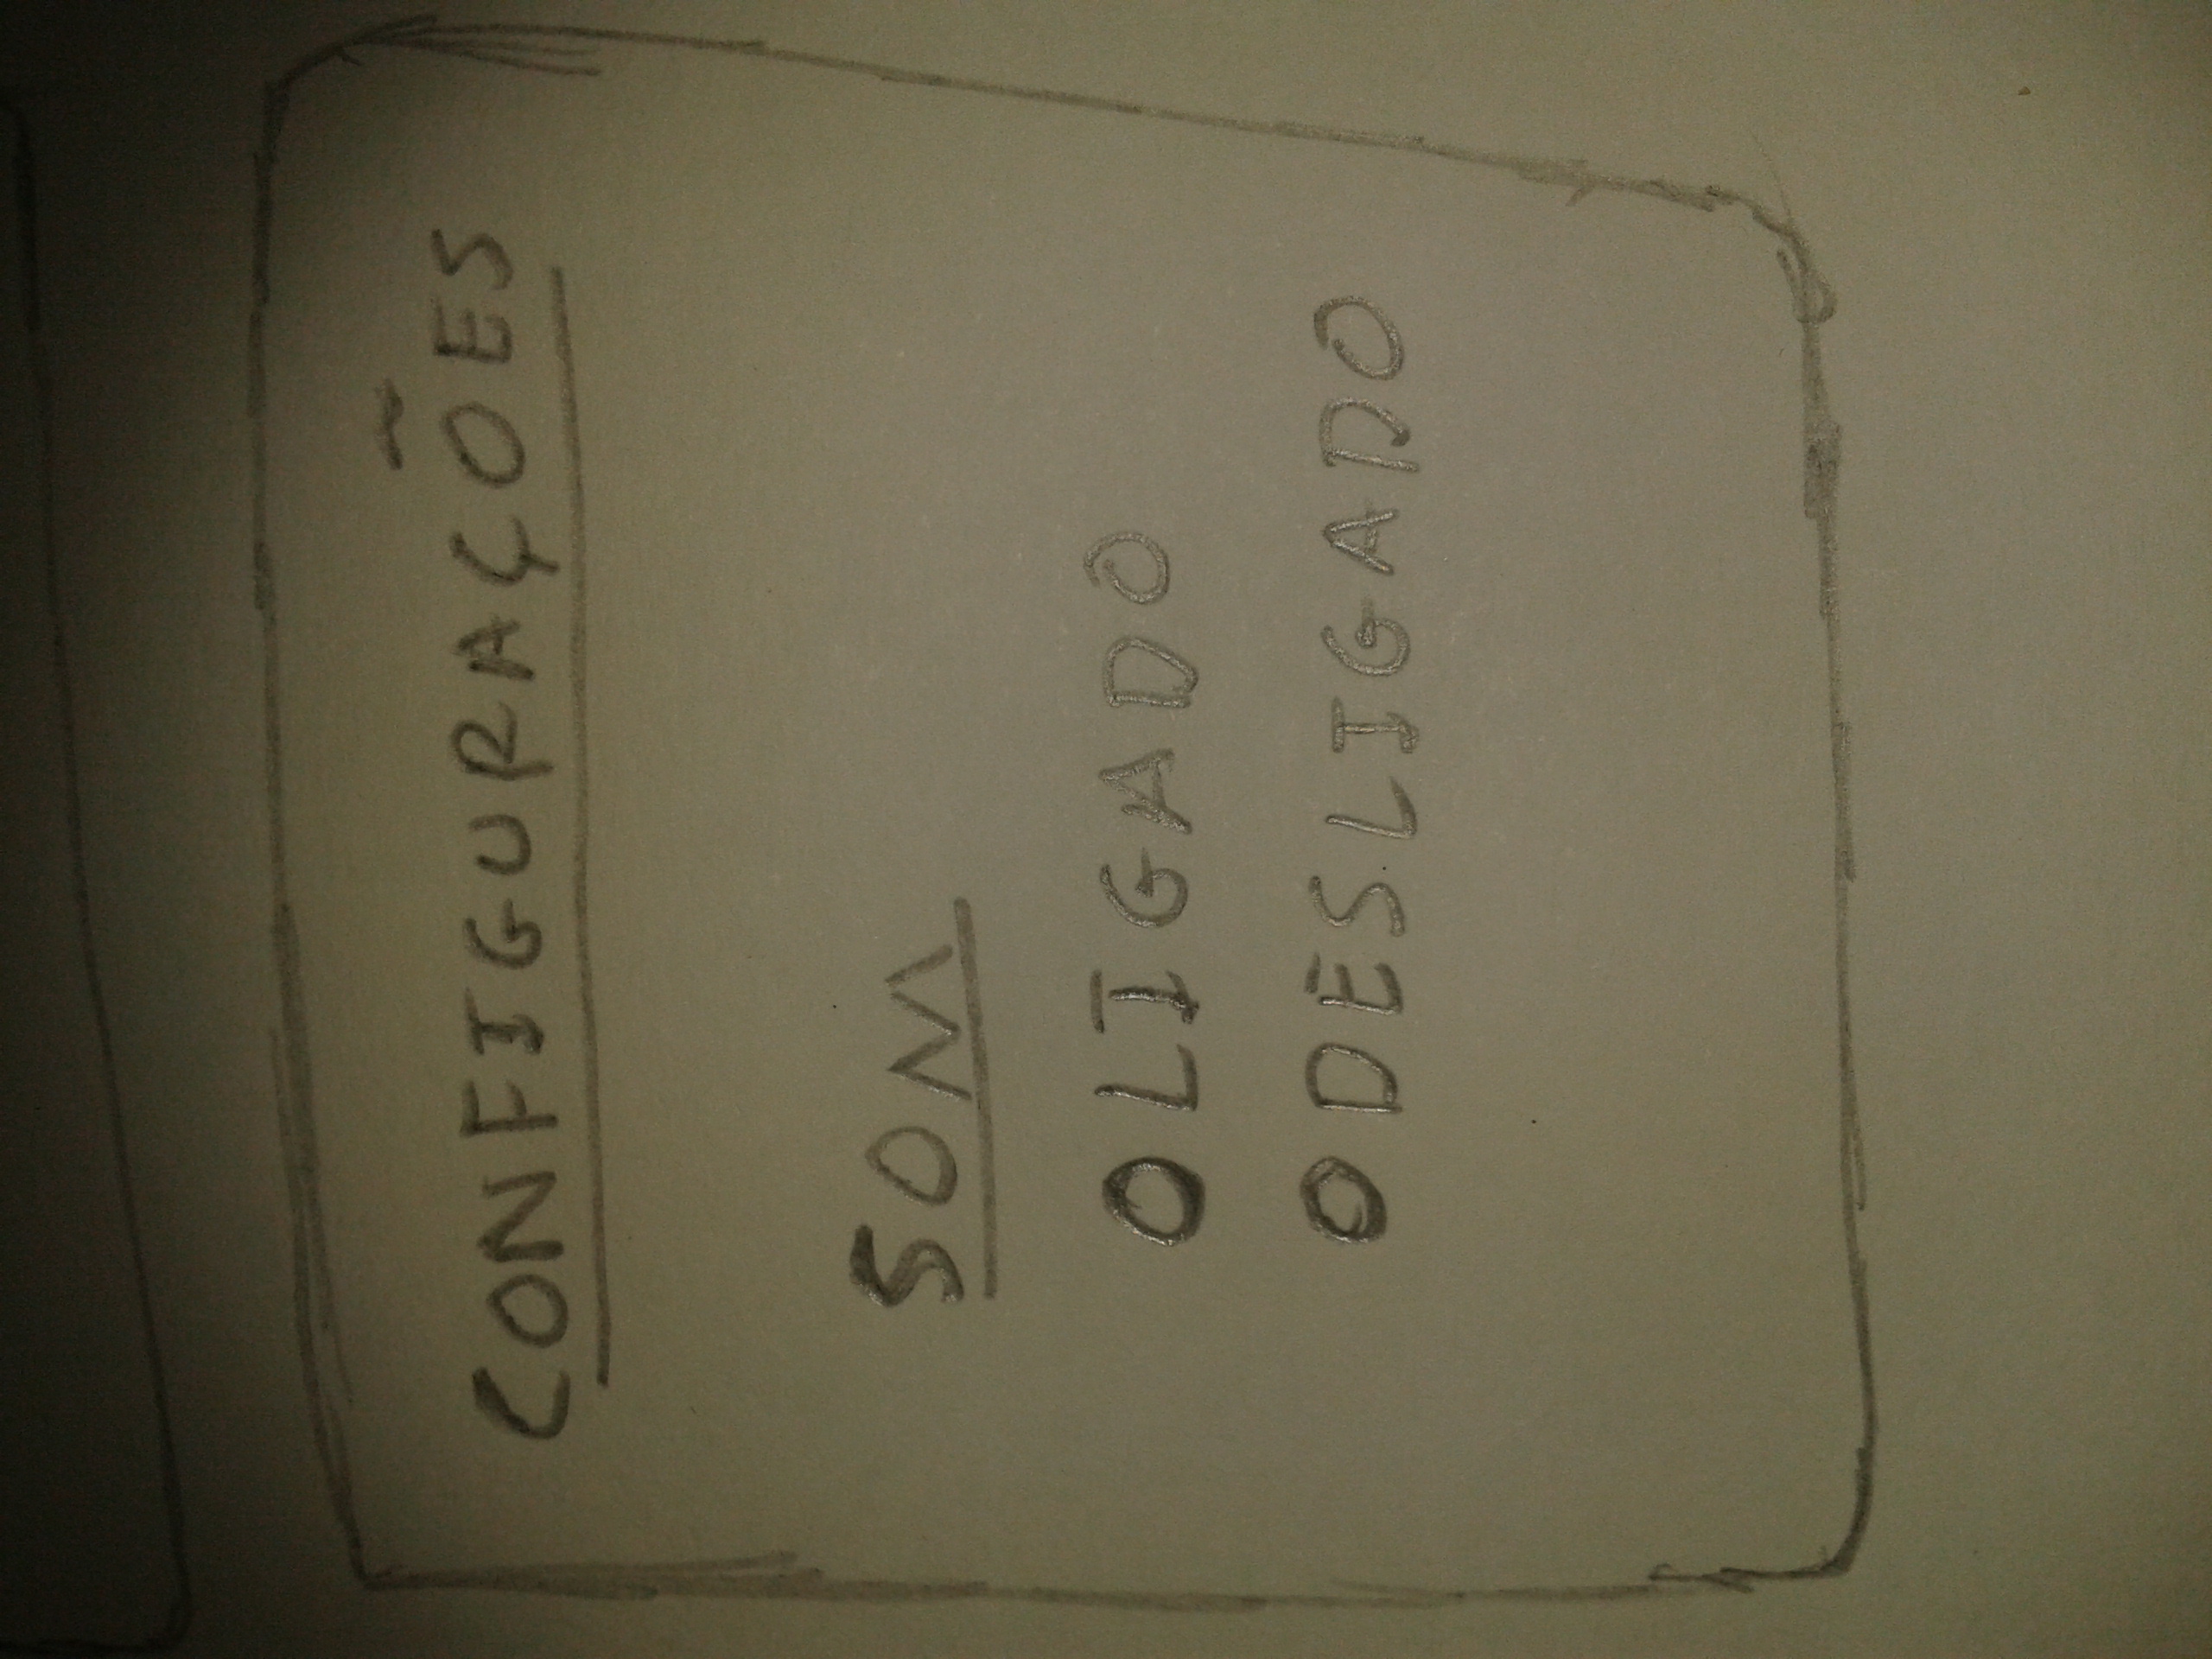 CONFIGURAÇÕES
SOM
O LIGADO
O DESLIGADO